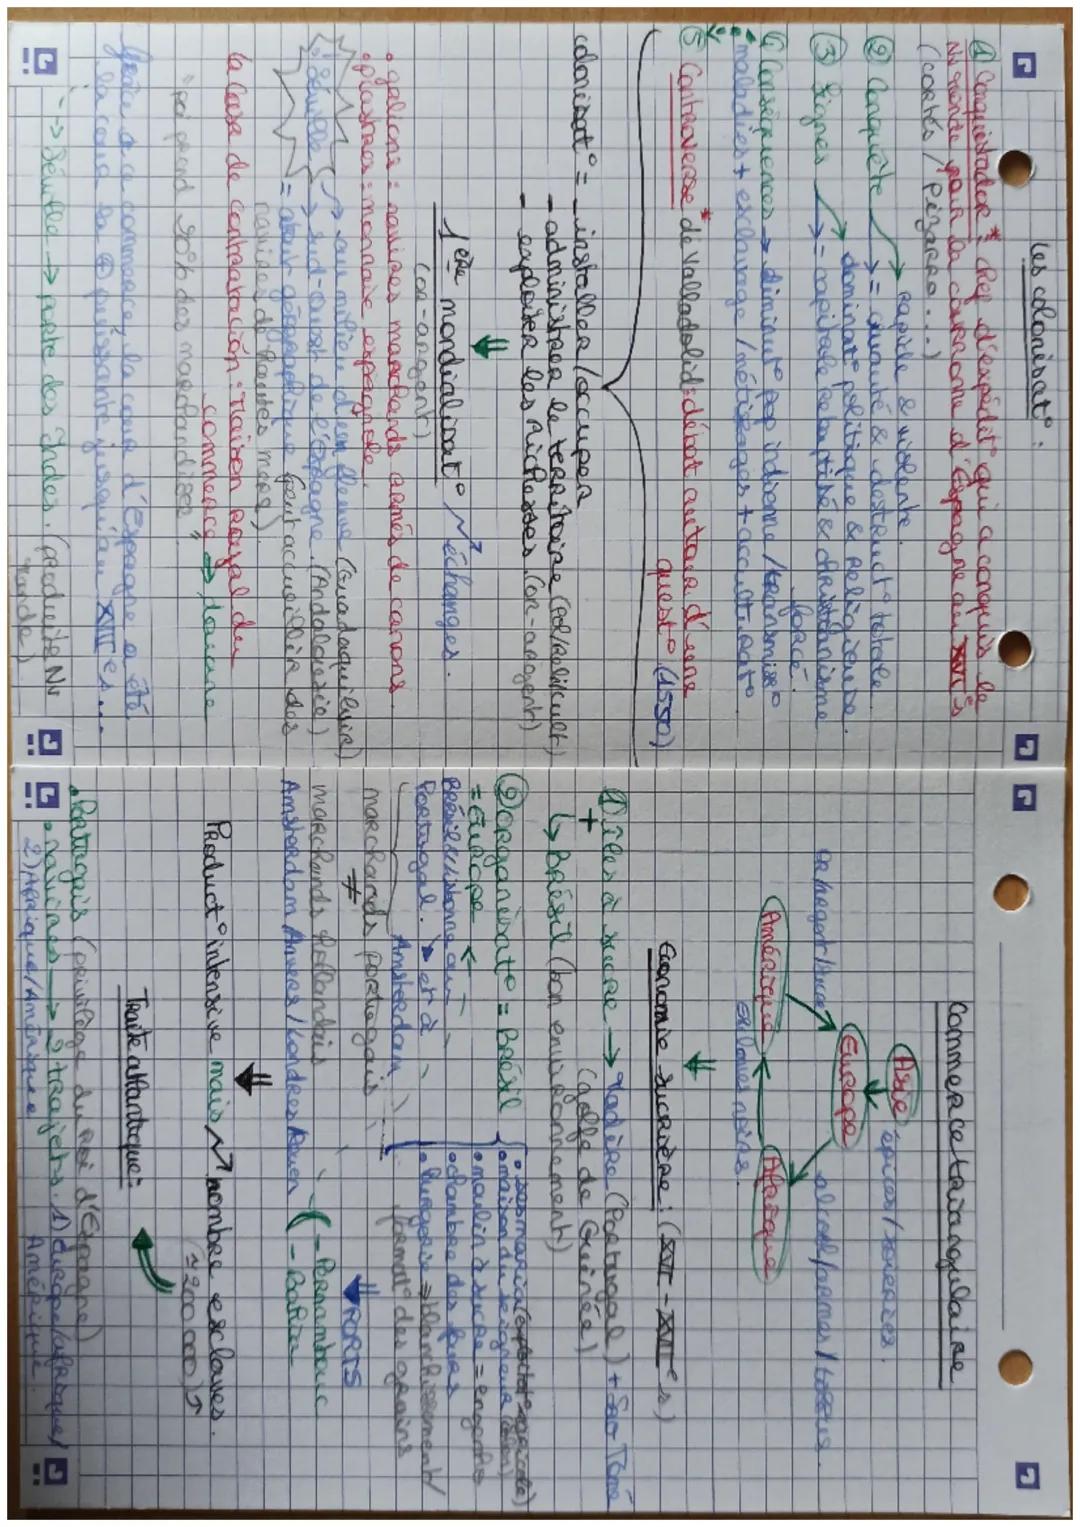 Les colonisat° :
① Conquistador * chef d'expédit° qui a conquis le
Nv monde pour la couronne d'Espagne au XVIe s
(Cortés / Pizarro...)
② Conquête → rapide & violente.
→ = cruauté & destruct° totale
③ Signes → dominat° politique & religieuse.
→ = capitale rebaptisé & christianisme
forcé.
④ Conséquences → diminut° pop indienne / transmiss°
maladies + esclavage / métissages + acculturat°
⑤ Controverse * de Valladolid : débat autour d'une
quest° (1550)
colonisat° = - installer / occuper
- administrer le territoire (pol/reli/cult)
- exploiter les richesses. (or-argent)
1ère mondialisat° ↗ échanges.
(or-argent)
• galions : navires marchands armés de canons
• piastres : monnaie espagnole.
• Séville → au milieu d'un fleuve (Guadalquivir)
→ sud-ouest de l'Espagne. (Andalousie)
= atout géographique (peut accueillir des
navires de hautes mers).
la Casa de contratación : maison royal du
commerce → douane
"roi prend 20% des marchandises"
Grâce à ce commerce, la cour d'Espagne a été
la cour la ⊕ puissante jusqu'au XVIIe s...
-> Séville → porte des Indes. (produits Nv
monde)
Commerce triangulaire
Asie épices / soieries.
Europe
or/argent/sucre
alcool/armes/tissus
Amérique
Afrique
esclaves noirs.
Economie sucrière : (XVI - XVIIe s)
① îles à sucre → Madère (Portugal) + Sao Tomé
+ (golfe de Guinée)
↳ Brésil (bon environnement)
② Organisat° = Brésil
• maison du seigneur
• moulin à sucre = engenho
• chambre des fours
• purgerie → blanchissement/
format° des grains
= Europe
Portugal. → et à
Amsterdam
marchands portugais
≠
marchands hollandais
Amsterdam Anvers / Londres Rouen
PORTS
- Pernambuc
- Bahia
Product° intensive mais ↗ nombre esclaves.
(≈ 200 000)
Traite atlantique :
• Portugais (privilège du roi d'Espagne)
• navires → trajets. 1) Europe/Afrique/
Amérique.
2) Afrique/Amérique